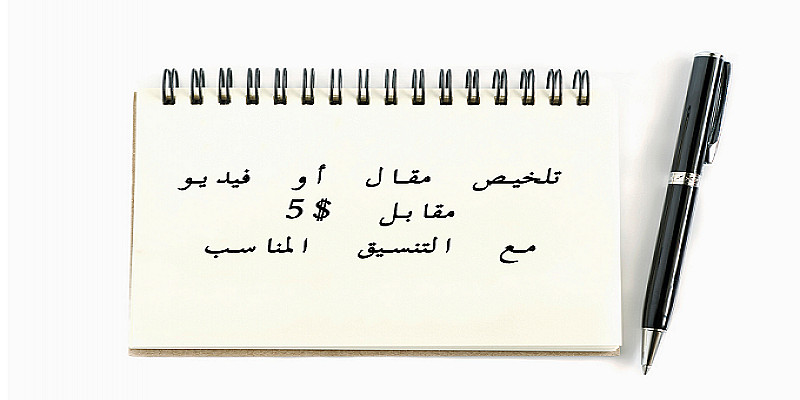 تلخيص مقال أو فيديو
مقابل $5
مع التنسيق المناسب